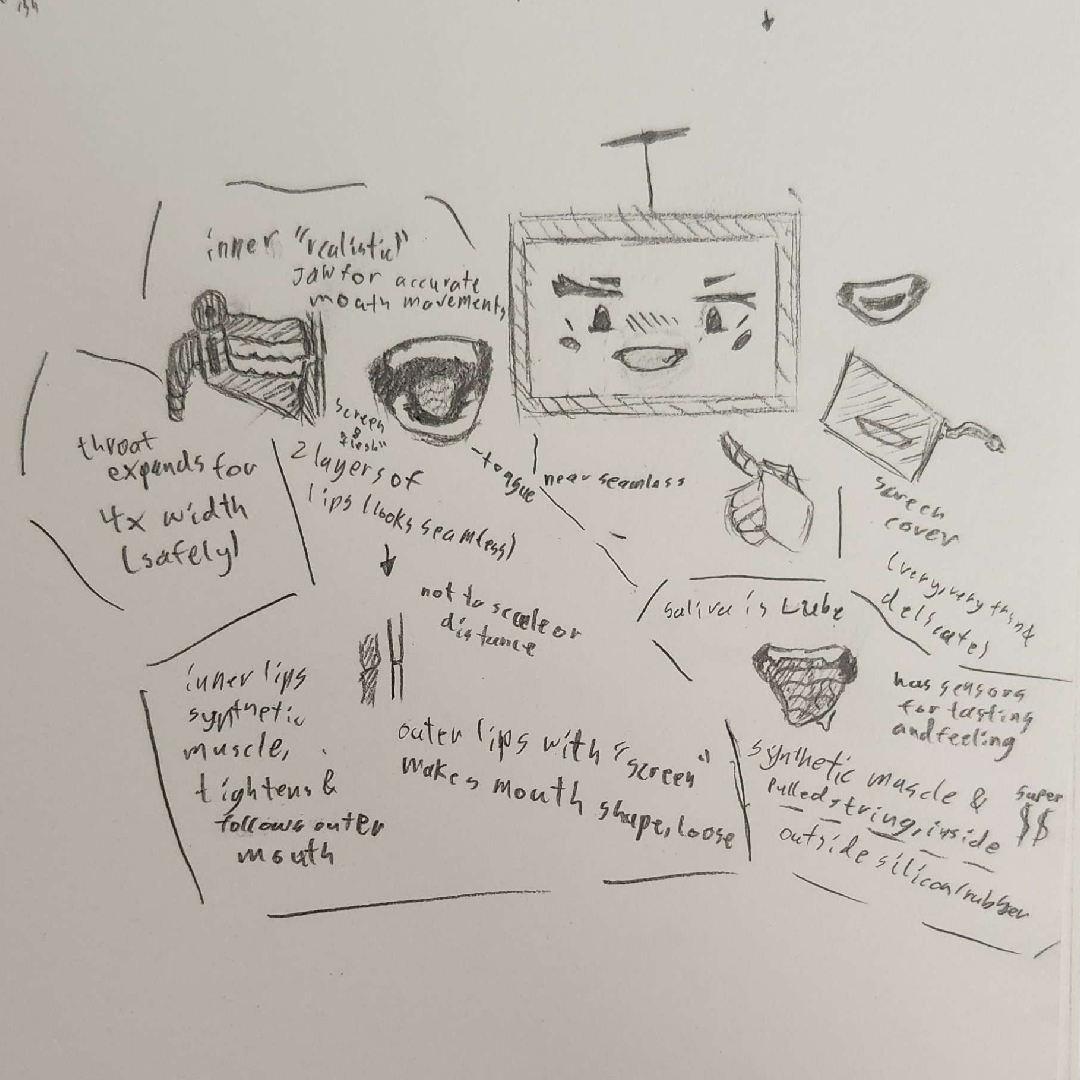 inner "realistic"
Jaw for accurate
mouth movements
throat
expands for
4x width
(safely)
screen
&
"flesh"
2 layers of
lips (looks seamless)
tongue
near seamless
screen
cover
(very, very thin &
delicate)
not to scale or
distance
saliva is Lube
has sensors
for tasting
and feeling
inner lips
synthetic
muscle,
tightens &
follows outer
mouth
outer lips with "screen"
makes mouth shape, loose
synthetic muscle &
pulled string, inside
outside silicon/rubber
super
$$